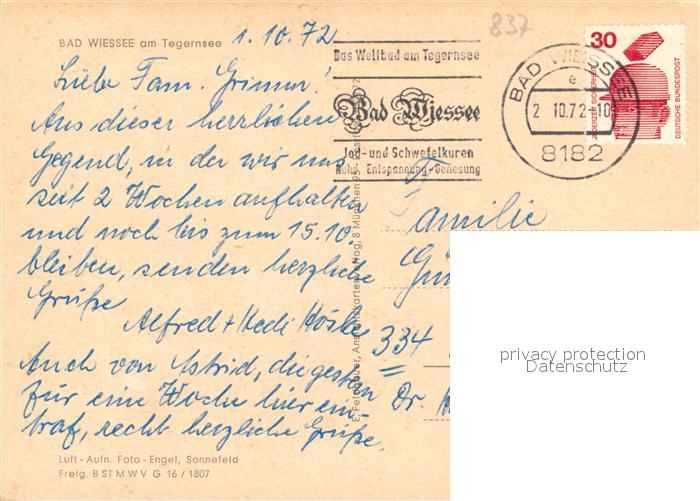 BAD WIESSEE am Tegernsee
1.10.72
Liebe Fam. Grimm!
Aus dieser herrlichen
Gegend, in der wir uns
seit 2 Wochen aufhalten
und noch bis zum 15.10.
bleiben, senden herzliche
Grüße
Alfred + Hedi
Auch von Astrid, die gestern
für eine Woche hier ein-
traf, recht herzliche Grüße.
Luft - Aufn. Foto - Engel, Sonnefeld
Freig. B ST M W V G 16 / 1807
837
Das Weltbad am Tegernsee
Bad Wiessee
Jod- und Schwefelkuren
Ruhe, Entspannung, Genesung
BAD WIESSEE
e
2 10.72 - 10
8182
30
JEDERZEIT SICHERHEIT
DEUTSCHE BUNDESPOST
Familie
334
Dr.
8 München
privacy protection
Datenschutz